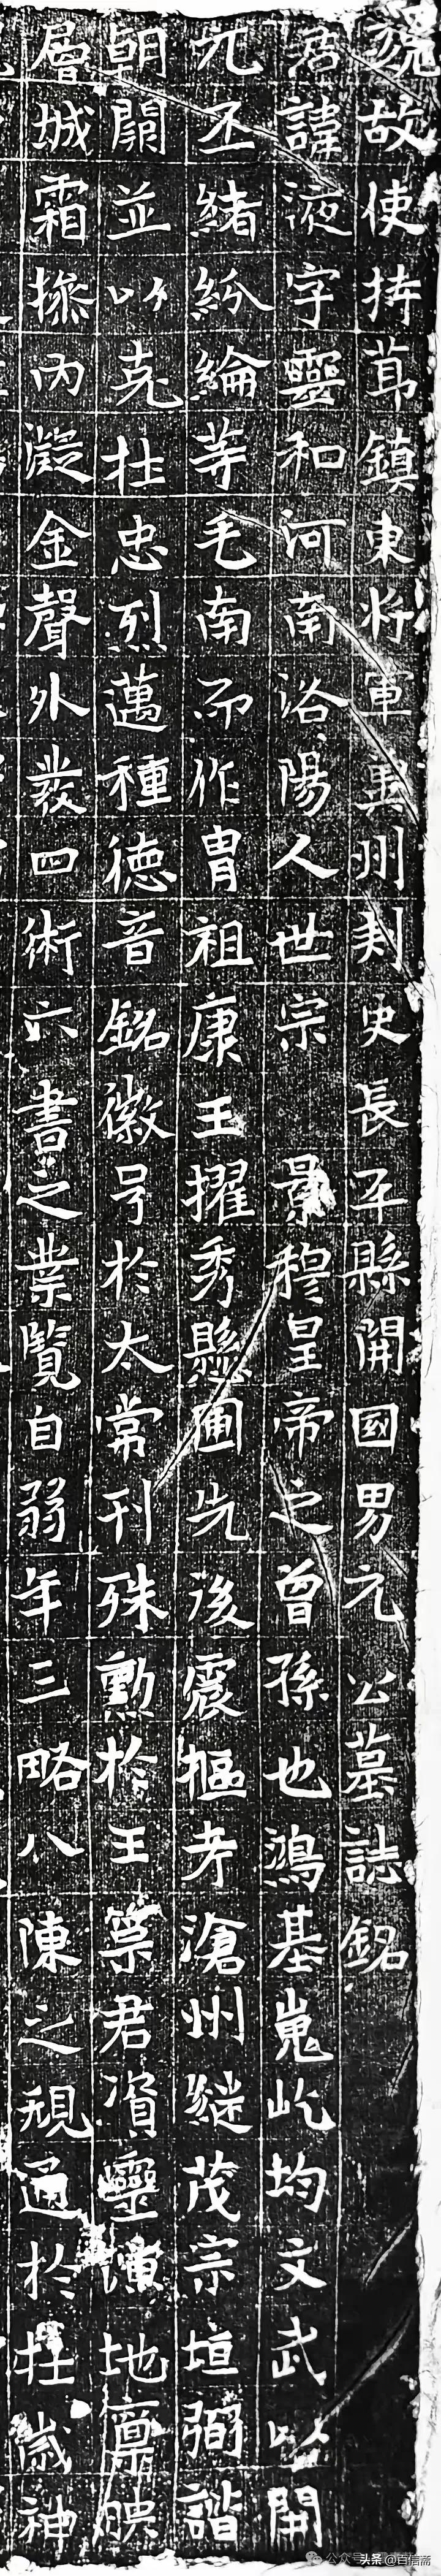 魏故使持節鎮東將軍冀州刾史長平縣開國男元公墓誌銘
君諱液字靈和河南洛陽人世宗 景穆皇帝之曾孫也鴻基嵬屹均文武以開
元丕緒紛綸等毛南而作冑祖康王擢秀縣圃先後震樞考滄州継茂宗垣弼諧
朝闕並以克壯忠烈邁種德音銘徽号於太常刊殊勲於王策君資靈誕地稟映
層城霜操內凝金聲外發四術六書之業覽自弱年三略八陳之規通於壯歲神
头条 @百信斋